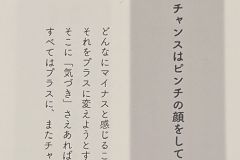 チャンスはピンチの顔をして
どんなにマイナスと感じるこ
それをプラスに変えようとす
そこに「気づき」さえあれば
すべてはプラスに、またチャ